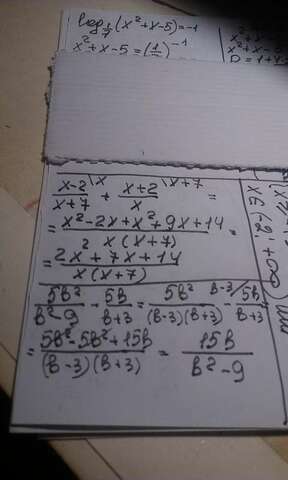 log_{1/7}(x²+x-5)=-1
x²+x-5=(1/7)^{-1}
\frac{x-2}{x+7}^{\x} + \frac{x+2}{x}^{\x+7} =
= \frac{x²-2x+x²+9x+14}{x(x+7)} =
= \frac{2x²+7x+14}{x(x+7)}
\frac{5b²}{b²-9} - \frac{5b}{b+3} = \frac{5b²}{(b-3)(b+3)} - ^{b-3/}\frac{5b}{b+3}
= \frac{5b²-5b²+15b}{(b-3)(b+3)} = \frac{15b}{b²-9}